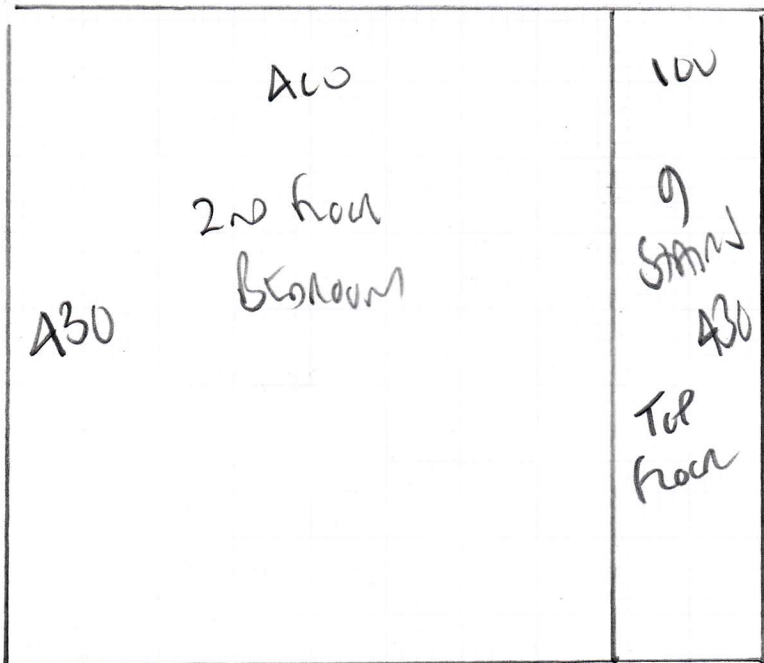 400
100
2ND FLOOR
BEDROOM
430
9
STAIRS
430
TOP
FLOOR